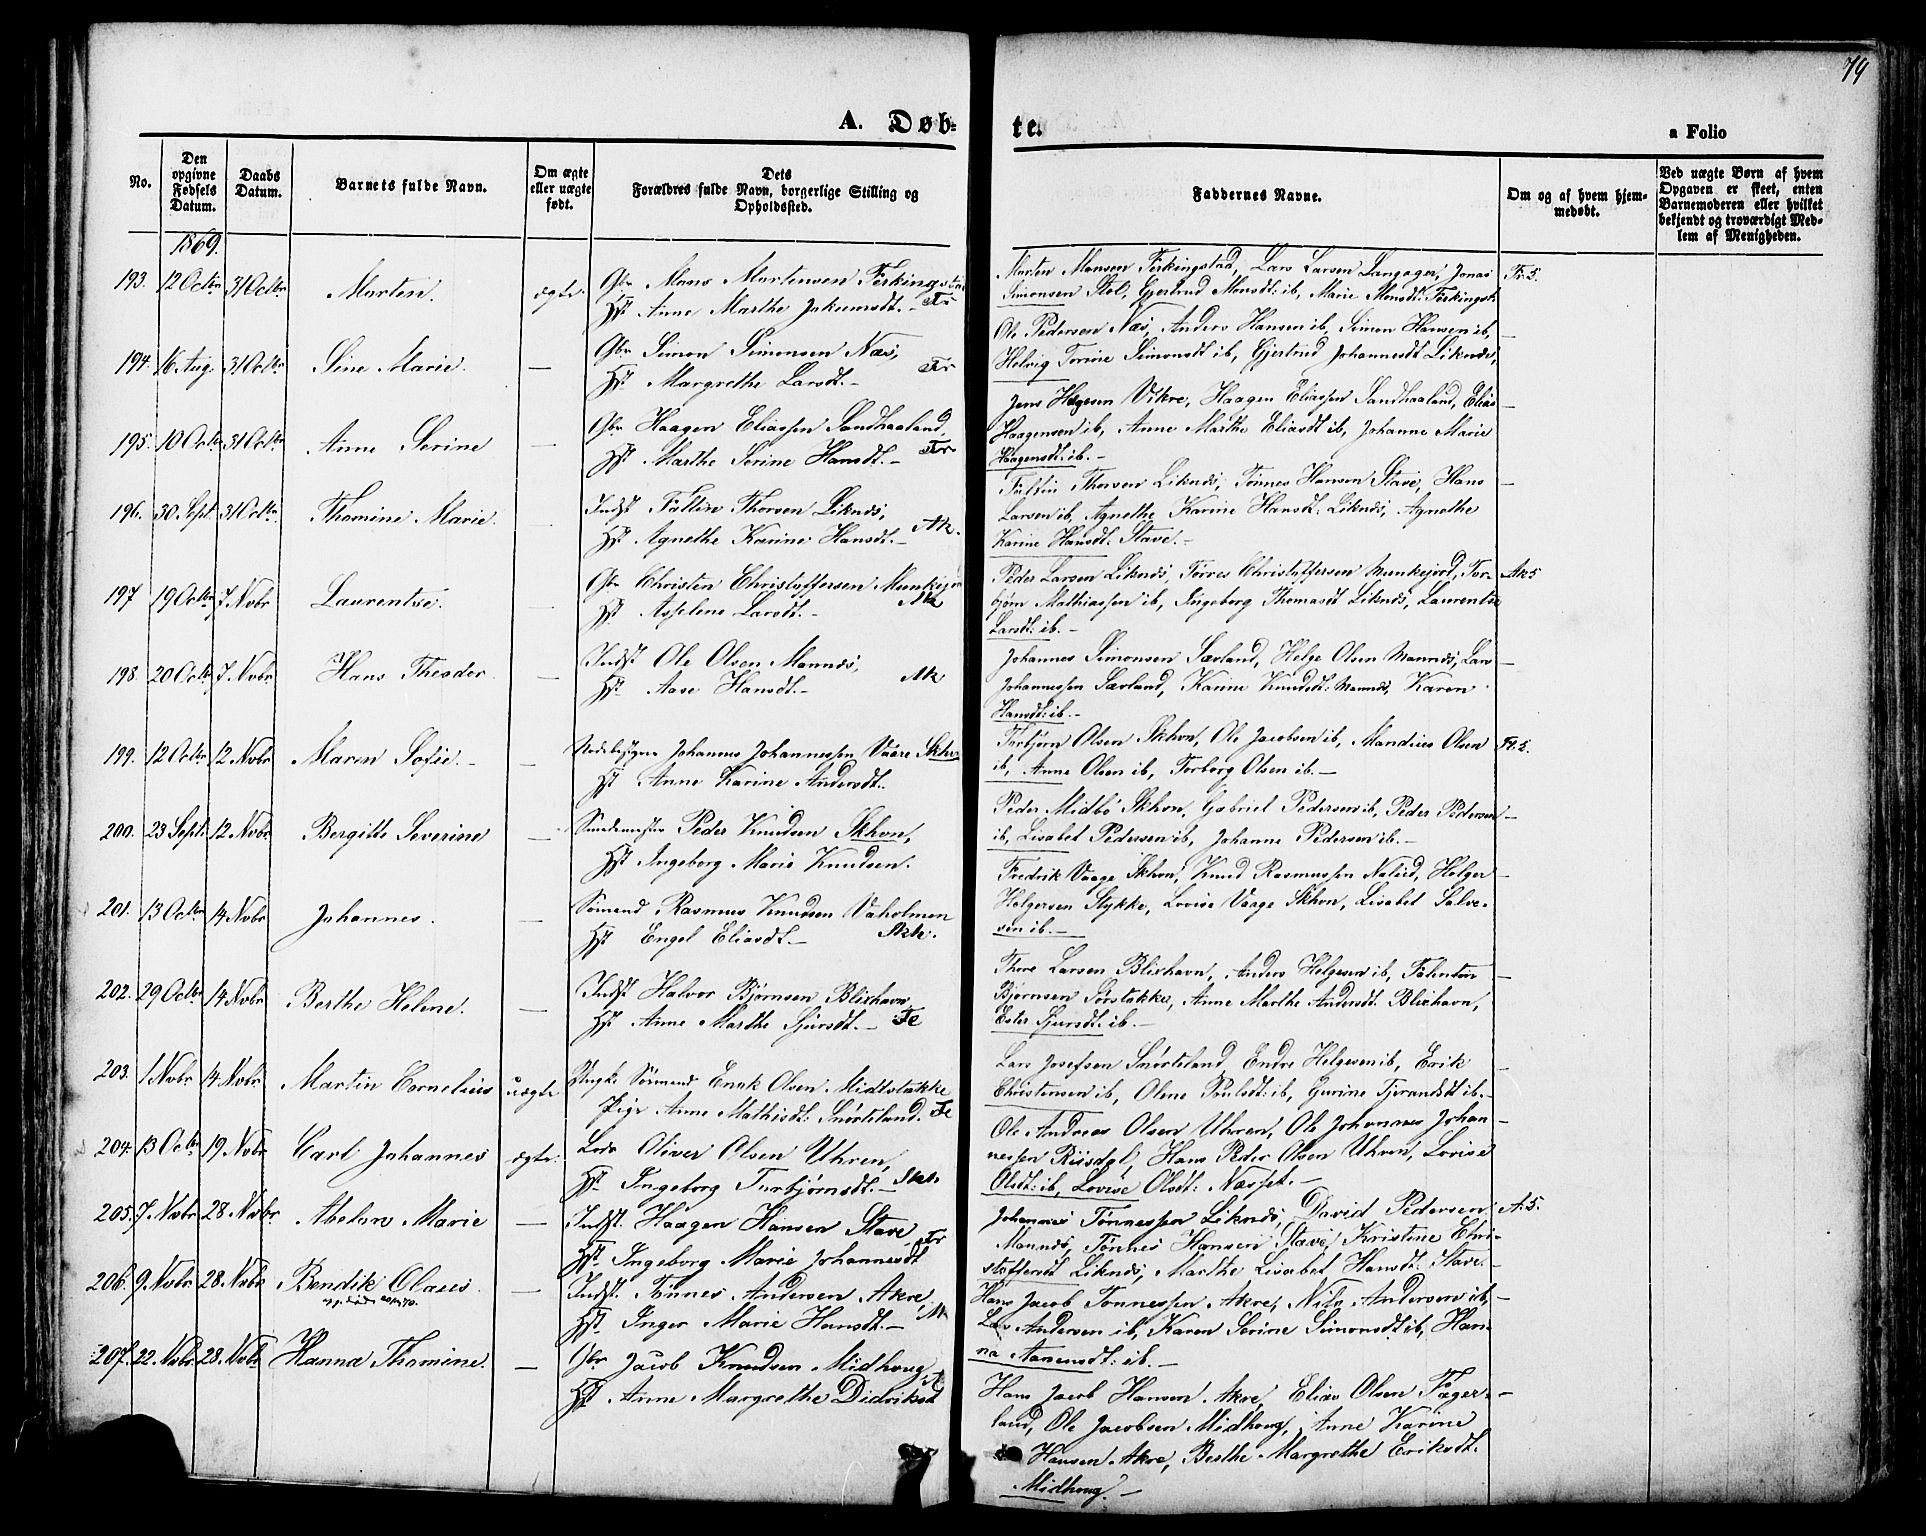 79
A. Døb-
te.
a Folio
No.
Den opgivne Fødsels Datum.
Daabs Datum.
Barnets fulde Navn.
Om ægte eller uægte født.
Dets Forældres fulde Navn, borgerlige Stilling og Opholdssted.
Faddernes Navne.
Om og af hvem hjemmedøbt.
Ved uægte Børn af hvem Opgaven er skeet, enten Barnemoderen eller hvilket bekjendt og troværdigt Medlem af Menigheden.
1869.
193. 12 Octbr 31 Octbr Morten. ægte. Gbr Mons Mortensen Ferkingstad
Hst Anne Marthe Jakumsdt. - Fr
Morten Monsen Ferkingstad, Lars Larsen Langager, Jonas Fr. 5.
Simonsen Stol, Gjertrud Monsdt: ib, Marie Monsdt: Ferkingst.
194. 16 Aug. 31 Octbr Sine Marie. — Gbr Simon Simonsen Næs,
Hst. Margrethe Larsdt. - Fr
Ole Pedersen Næs, Anders Hansen ib, Simon Hansen ib, —
Helvig Torine Simonsdt ib, Gjertrud Johannesdt Liknæs,
195. 10 Octbr 31 Octbr Anne Serine — Gbr Haagen Eliassen Sandhaaland,
Hst Marthe Serine Hansdt. - Fr
Jens Helgesen Vikre, Haagen Eliassen Sandhaaland, Elias —
Haagensen ib, Anne Marthe Eliasdt ib, Johanne Marie
Haagensdt: ib. -
196. 30 Sept. 31 Octbr. Thomine Marie. — Indst Faltin Thorsen Liknæs,
Hst Agnethe Karine Hansdt. - Ak.
Faltin Thorsen Liknæs, Tønnes Hansen Stave, Hans —
Larsen ib, Agnethe Karine Hansdt. Liknæs, Agnethe
Karine Hansdt: Stave. -
197 19 Octbr 7 Nvbr Laurentse. — Gbr Christen Christoffersen Munkejord
Hst. Asselene Larsdt. - Ak
Peder Larsen Liknæs, Torres Christoffersen Munkejord, Tor- Ak 5
bjørn Mathiassen ib, Ingeborg Thomasdt Liknæs, Laurentse
Larsdt: ib. -
198. 20 Octbr 7 Nvbr. Hans Theodor. — Indst Ole Olsen Mannæs,
Hst. Aase Hansdt. - Ak
Johannes Simonsen Sævland, Helge Olsen Mannæs, Lars —
Johannessen Sævland, Karine Knudsdt: Mannæs, Karen
Hansdt: ib. -
199. 12 Octbr 12 Nvbr Maren Sofie. - — Johannes Johannessen Vaare Skhvn
Hst Anne Karine Andersdt.
Torbjørn Olsen Skhvn, Ole Jacobsen ib, Mandius Olsen Ft. 5.
ib, Anne Olsen ib, Torborg Olsen ib. -
200. 23 Sept. 12 Nvbr. Bergitte Severine — Peder Knudsen Skhvn,
Hst Ingeborg Marie Knudsen.
Peder Midbø Skhvn, Gabriel Pedersen ib, Peder Pedersen —
ib, Lisabet Pedersen ib, Johanne Pedersen ib. -
201. 13 Octbr 14 Nvbr Johannes. — Sømand Rasmus Knudsen Vaholmen
Hst Engel Eliasdt. - Skh.
Fredrik Vaage Skhvn, Knud Rasmussen Natvid, Holger —
Holgersen Stykke, Lovise Vaage Skhvn, Lisabet Salve-
sen ib. -
202. 29 Octbr 14 Nvbr Berthe Helene. — Indst Halvor Bjørnsen Blixhavn,
Hst. Anne Marthe Sjursdt. - Fe
Thore Larsen Blixhavn, Anders Helgesen ib, Falentin —
Bjørnsen Sørstakke, Anne Marthe Andersdt. Blixhavn,
Ester Sjursdt: ib. -
203. 1 Nvbr 14 Nvbr. Martin Cornelius uægte Ungk. Sømand Enok Olsen Midtstakke
Pige Anne Mathisdt: Snørteland. Fe
Lars Josefsen Snørteland, Endre Helgesen ib, Erik —
Christensen ib, Olene Poulsdt: ib, Gurine Tjerandsdt ib. -
204. 13 Octbr 19. Nvbr. Carl Johannes ægte. Lods Oliver Olsen Uhren,
Hst. Ingeborg Torbjørnsdt. - Skh.
Ole Andreas Olsen Uhren, Ole Johannes Johan- —
nessen Riisdal, Hans Peder Olsen Uhren, Lovise
Olsdt: ib, Lovise Olsdt: Næsset. -
205. 7. Nvbr. 28 Nvbr Abelone Marie — Indst. Haagen Hansen Stave, Fr
Hst. Ingeborg Marie Johannesdt
Johannes Tønnessen Liknæs, David Pedersen A: 5.
Mannæs, Tønnes Hansen Stave, Kristine Chri-
stoffersdt Liknæs, Marthe Lisabet Hansdt: Stave. -
206. 9. Nvbr 28. Nvbr Bendik Olaus. — Indst. Tønnes Andersen Akre, Ak
Hst. Inger Marie Hansdt. -
Hans Jacob Tønnessen Akre, Nils Andersen ib, —
Lars Andersen ib, Karen Serine Simonsdt ib, Han-
na Aanensdt: ib. -
207. 22. Nvbr 28. Nvbr. Hanna Thomine. — Gbr Jacob Knudsen Midhoug A
Hst. Anne Margrethe Didriksdt
Hans Jacob Hansen Akre, Elias Olsen Fager- —
land, Ole Jacobsen Midhoug, Anne Karine
Hansen Akre, Berthe Margrethe Eriksdt.
Midhoug. -